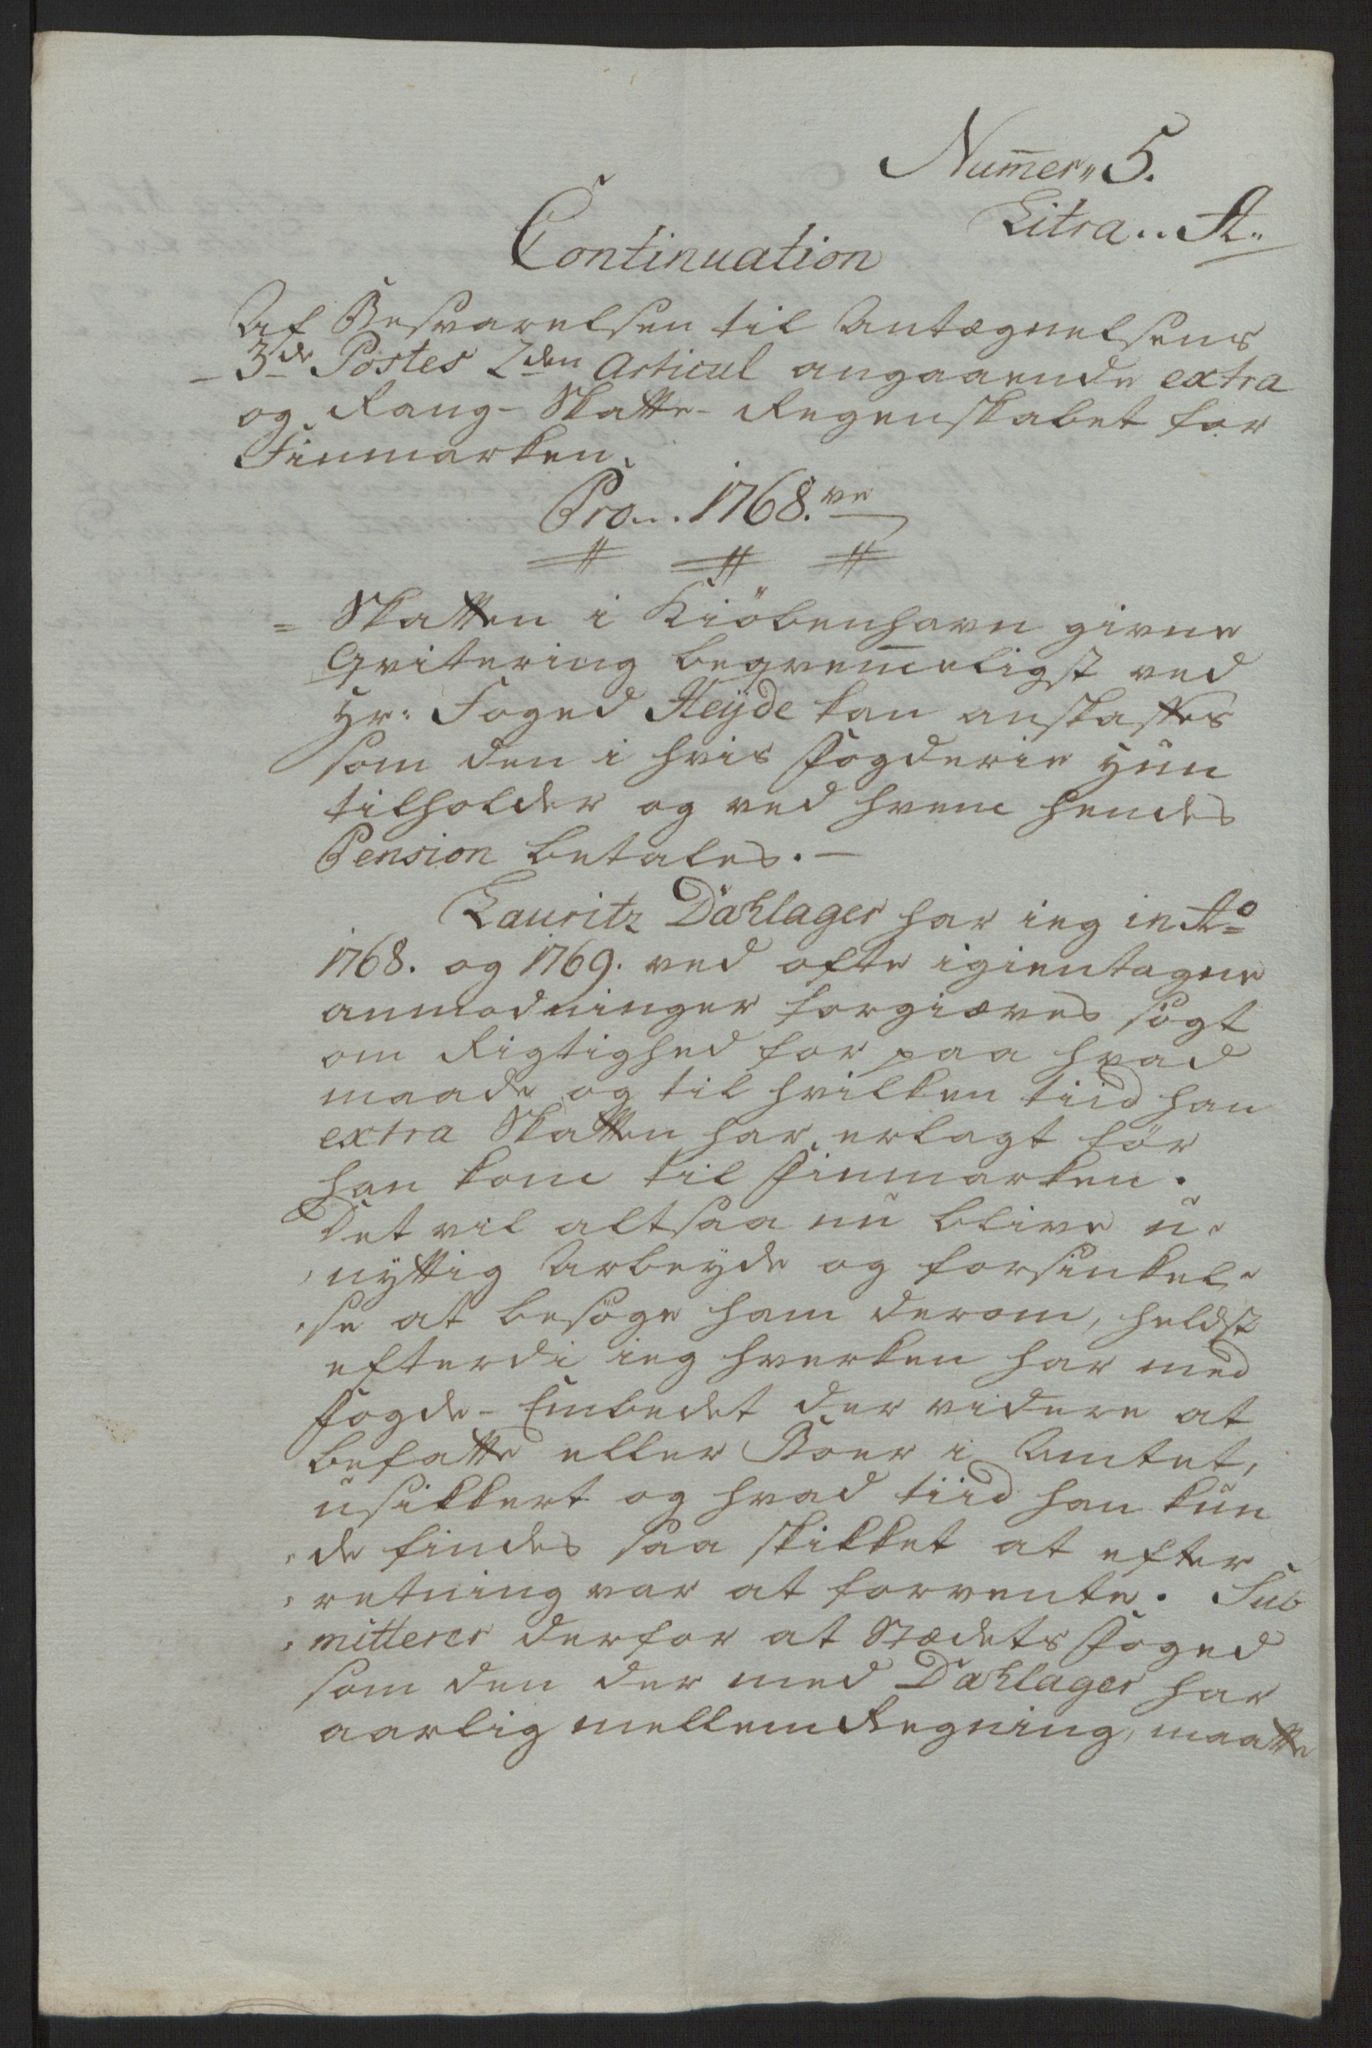 Num̄er„ 5.
Litra.. A„
Continuation
Af Besvarelsen til Antægnelsens
3de Postes 2den Articul angaaende extra
og Rang- Skatte- Regenskabet for
Finmarken.
Pro... 1768.ve
= Skatten i Kiöbenhavn givne
Qvitering beqvem̄eligst ved
Hr: Foged Heÿde kan anskaffes
som den i hvis Fogderie hun
tilholder og ved hvem hendes
Pension betales. —
Lauritz Dahlager har ieg in Ao
1768. og 1769. ved ofte igientagne
anmodninger forgiæves sögt
om Rigtighed for paa hvad
maade og til hvilken tiid han
extra Skatten har erlagt för
han kom til Finmarken.
Det vil altsaa nu blive u-
nyttig Arbeyde og forsinkel-
se at besöge ham derom, heldst
efterdi ieg hverken har med
Fogde- Embedet der videre at
befatte eller Boer i Amtet,
usikkert og hvad tiid han kun
de findes saa skikket at efter
retning var at forvente. Sub
mitterer derfor at Stædets Foged
som den der med Dahlager har
aarlig mellem Regning, maatte